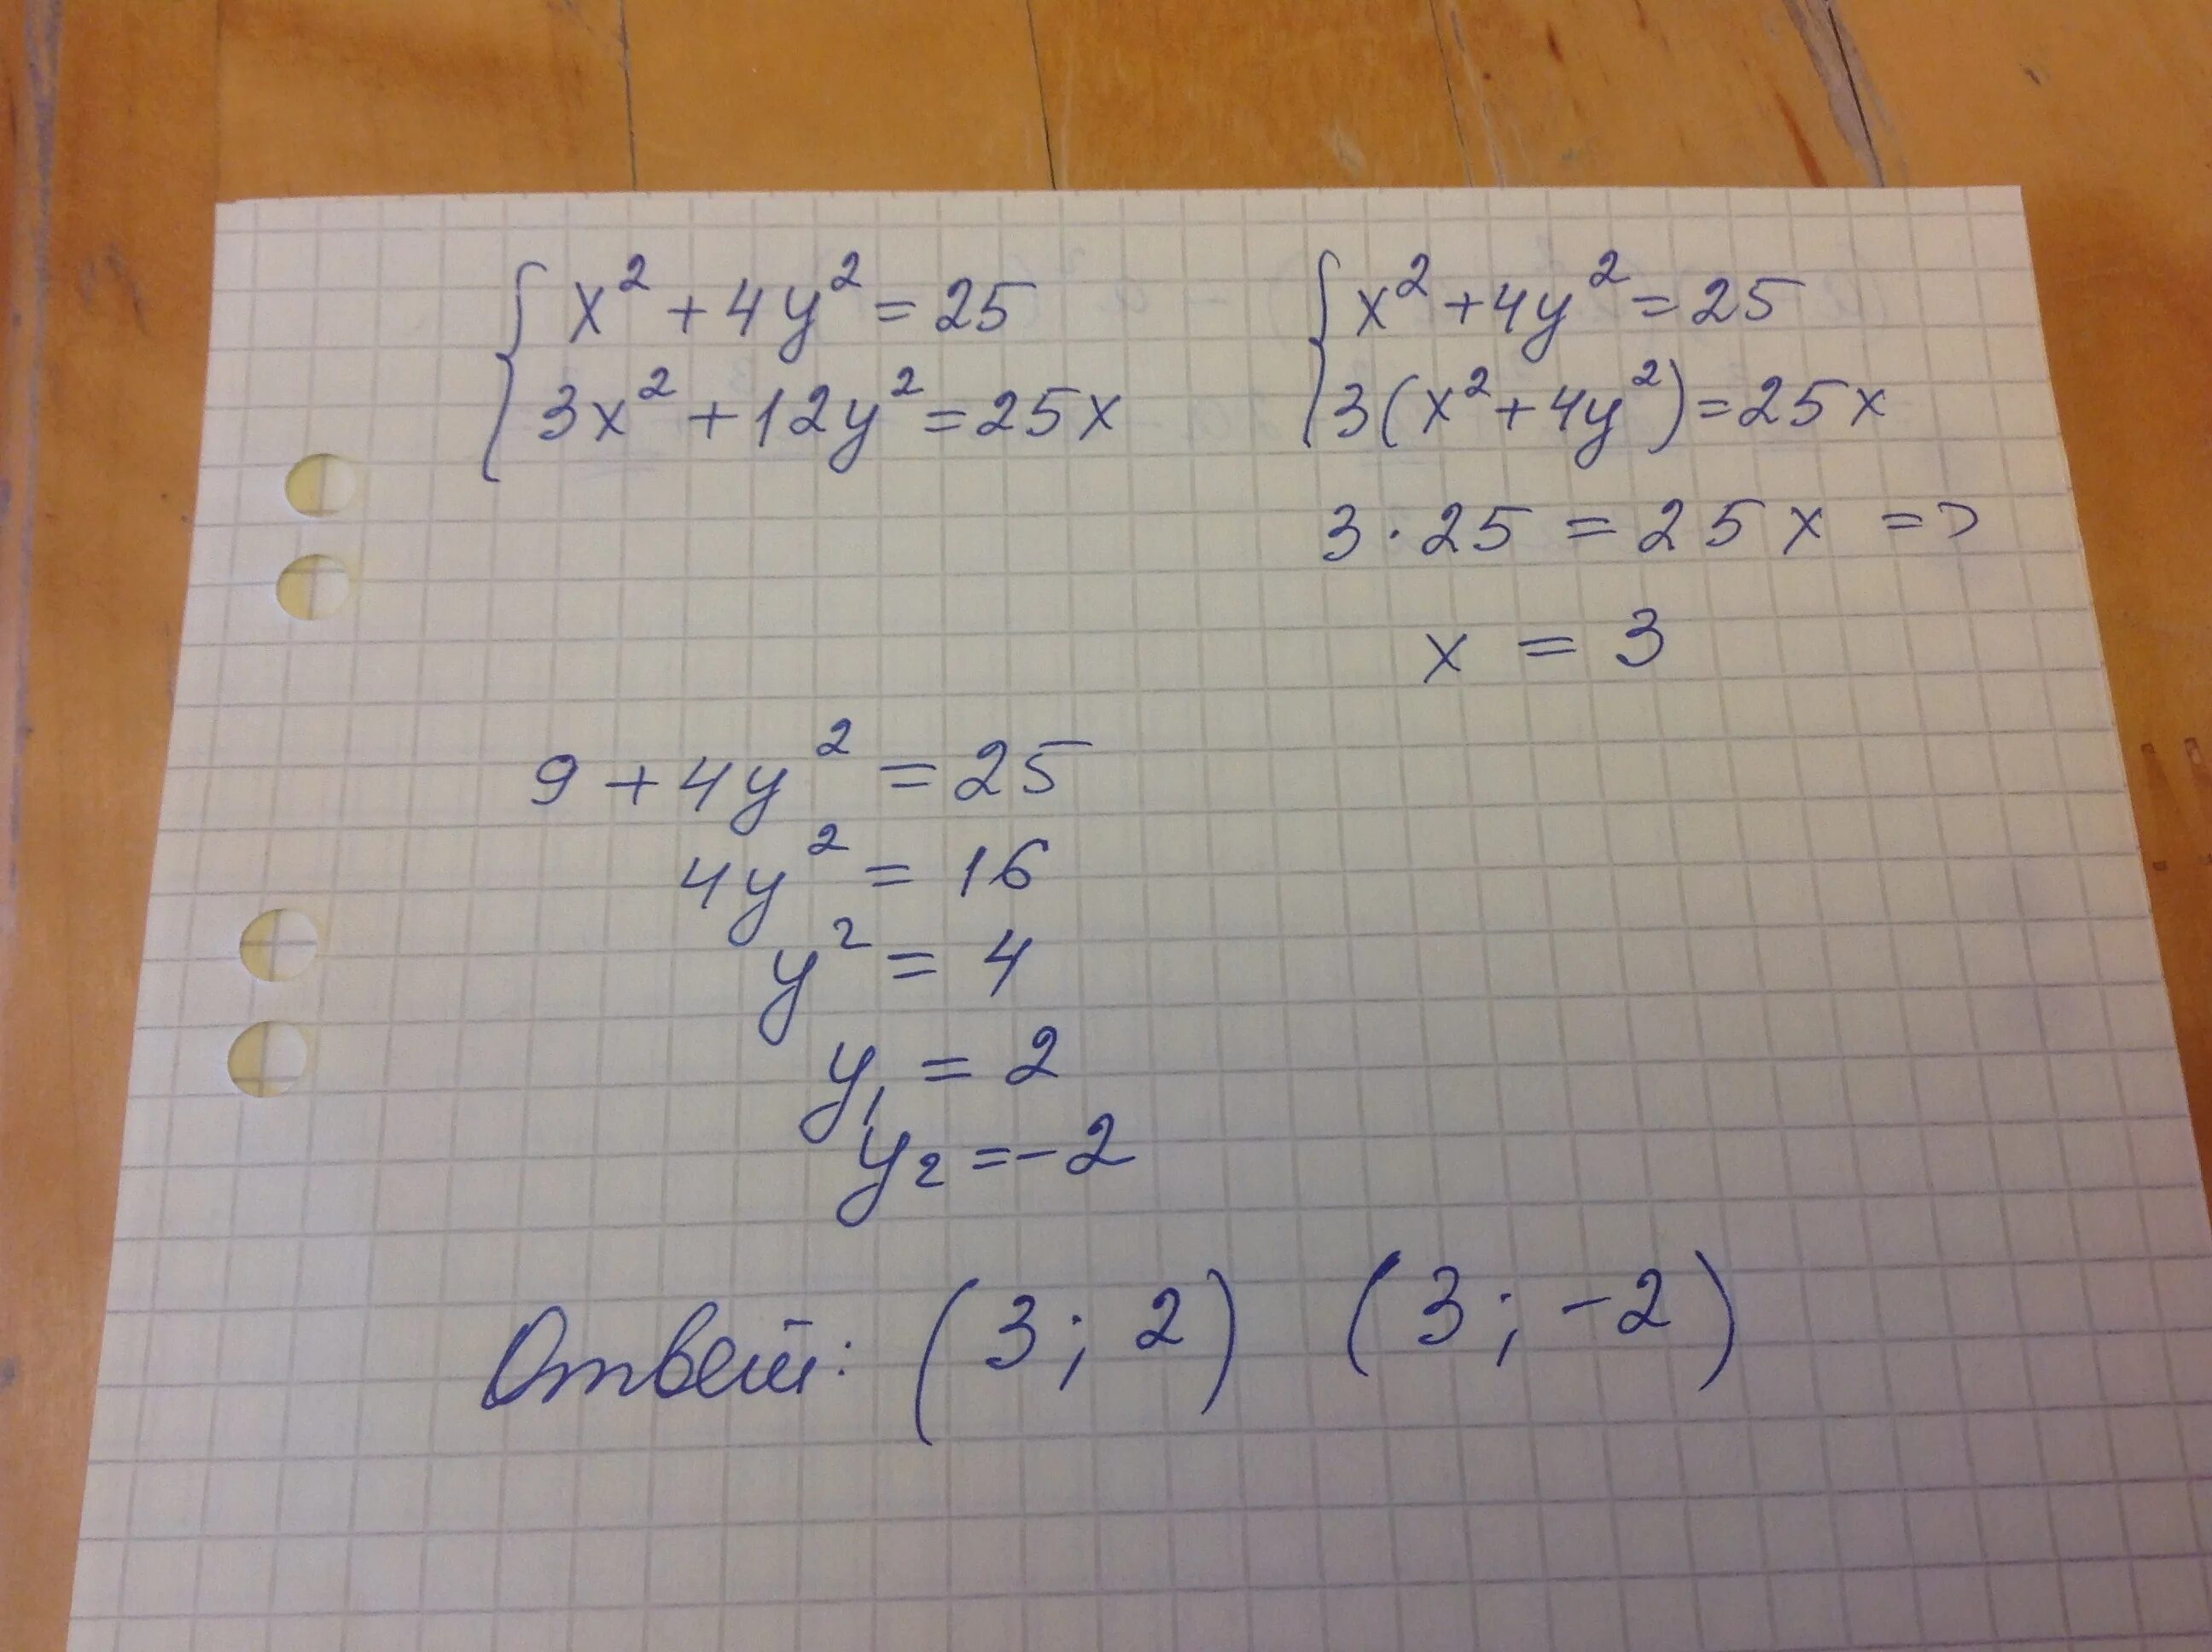 { x² + 4y² = 25
3x² + 12y² = 25x
{ x² + 4y² = 25
3(x² + 4y²) = 25x
3 · 25 = 25x =>
x = 3
9 + 4y² = 25
4y² = 16
y² = 4
y₁ = 2
y₂ = -2
Ответ: (3; 2) (3; -2)